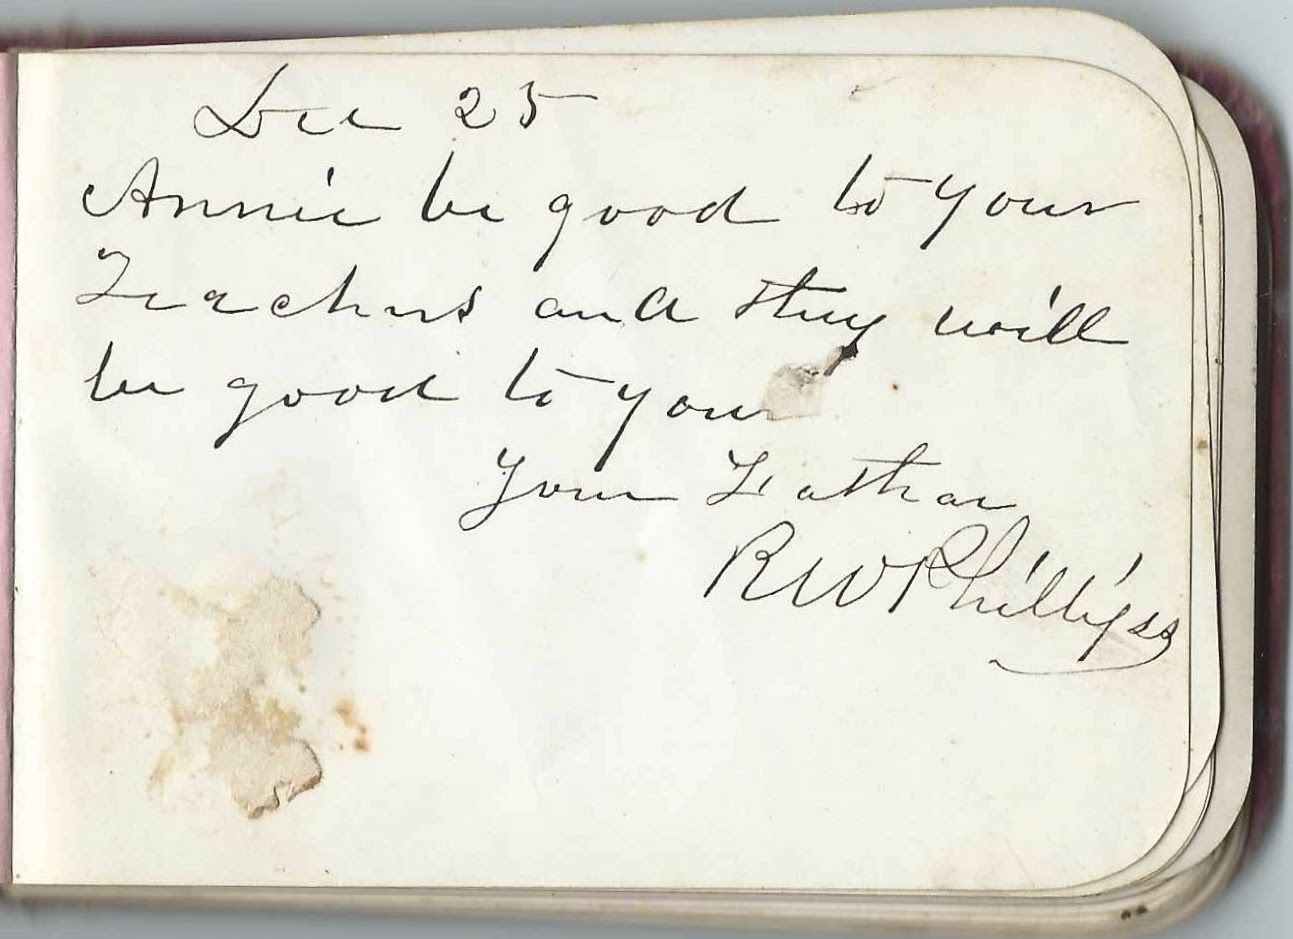 Dec 25
Annie be good to your
Teachers and they will
be good to you
Your Father
R W Phillips